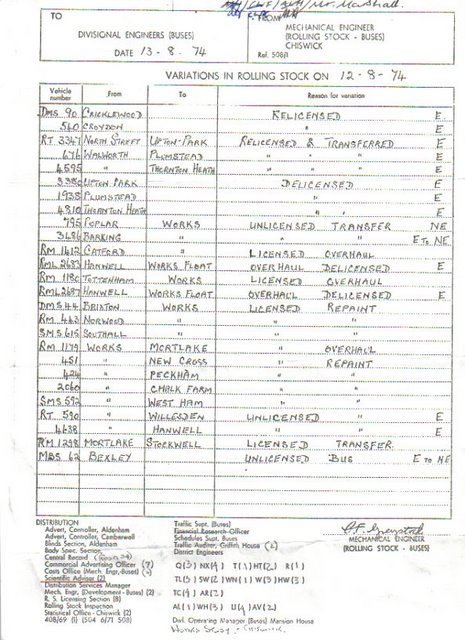 Mr. Marshall.
TO FROM
DIVISIONAL ENGINEERS (BUSES) MECHANICAL ENGINEER
(ROLLING STOCK - BUSES)
CHISWICK
DATE 13 - 8 - 74 Ref. 508/1
VARIATIONS IN ROLLING STOCK ON 12 - 8 - 74
Vehicle number From To Reason for variation
DMS 90 CRICKLEWOOD RELICENSED E
540 CROYDON " E
RT 3347 NORTH STREET UPTON-PARK RELICENSED & TRANSFERRED E
676 WALWORTH PLUMSTEAD " " " E
4595 " THORNTON HEATH " " " E
3380 UPTON PARK DELICENSED E
1938 PLUMSTEAD " E
4810 THORNTON HEATH " E
795 POPLAR WORKS UNLICENSED TRANSFER NE
3486 BARKING " " " E TO NE
RM 1612 CATFORD " LICENSED OVERHAUL
RML 2683 HANWELL WORKS FLOAT OVERHAUL DELICENSED E
RM 1180 TOTTENHAM WORKS LICENSED OVERHAUL
RML 2687 HANWELL WORKS FLOAT OVERHAUL DELICENSED E
DMS 44 BRIXTON WORKS LICENSED REPAINT
RM 443 NORWOOD " " "
SMS 615 SOUTHALL " " "
RM 1179 WORKS MORTLAKE " OVERHAUL
451 " NEW CROSS " REPAINT
424 " PECKHAM " "
2060 " CHALK FARM " "
SMS 592 " WEST HAM " "
RT 590 " WILLESDEN UNLICENSED " E
4638 " HANWELL " " E
RM 1298 MORTLAKE STOCKWELL LICENSED TRANSFER.
MBS 62 BEXLEY UNLICENSED BUS E TO NE
DISTRIBUTION
Advert. Controller, Aldenham
Advert. Controller, Camberwell
Blinds Section, Aldenham
Body Spec. Section
Central Record
Commercial Advertising Officer (7)
Costs Office (Mech. Engr.-Buses)
Scientific Adviser (2)
Distribution Services Manager
Mech. Engr. (Development-Buses) (2)
R. S. Licensing Section (8)
Rolling Stock Inspection
Statistical Office - Chiswick (2)
408/69 (1) (504 6/71 508)
Traffic Supt. (Buses)
Financial Research Officer
Schedules Supt. Buses
Traffic Auditor, Griffith House (2)
District Engineers
Q(3) NX(4) T(1) HT(2) R(1)
TL(3) SW(2) WN(1) W(3) HW(3)
TC(4)
AL(1) WH(3) U(4) AV(2)
Divl. Operating Manager (Buses) Mansion House
MECHANICAL ENGINEER
(ROLLING STOCK - BUSES)